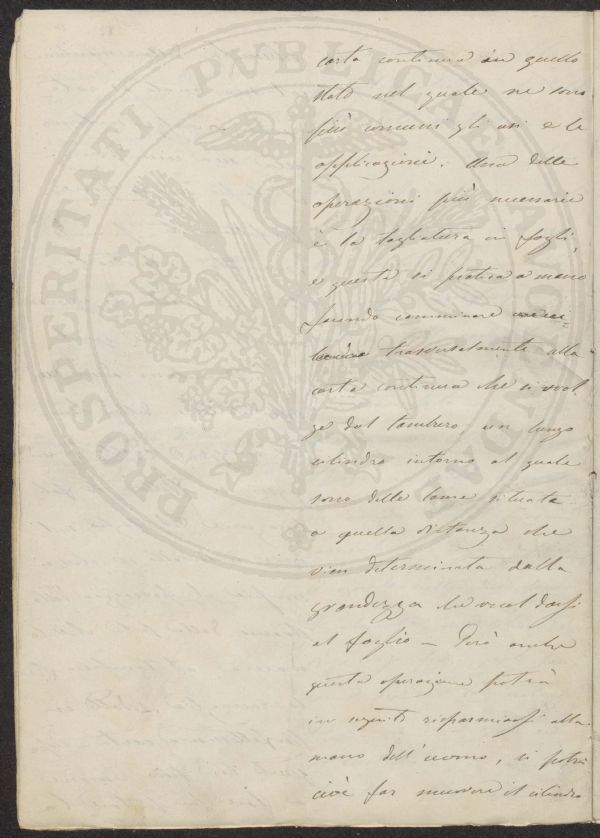 carta continua in quello
stato nel quale ne sono
più comuni gli usi e le
applicazioni. Una delle
operazioni più necessarie
è la tagliatura in fogli,
e questa si pratica a mano
facendo camminare
trasversalmente alla
carta continua che si svol-
ge dal tamburo, un lungo
cilindro intorno al quale
sono delle lame situate
a quella distanza che
vien determinata dalla
grandezza che vuol darsi
al foglio — Però anche
questa operazione potrà
in seguito risparmiarsi alla
mano dell'uomo, si potrà
cioè far muovere il cilindro
PROSPERITATI PVBLICAE AVGENDAE